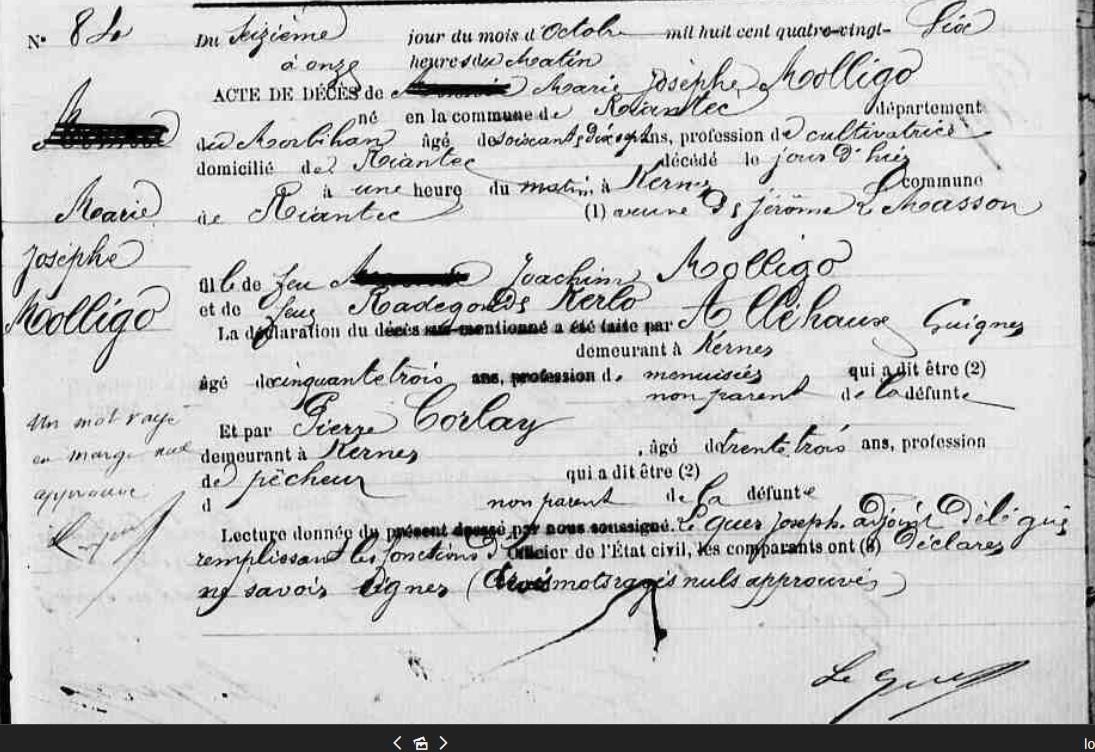 N° 84
Du Seizième jour du mois d'Octobre mil huit cent quatre-vingt-
à onze heures du Matin
ACTE DE DÉCÈS de Marie Josèphe Molligo
né en la commune de Riantec département
du Morbihan âgé de soixante dix sept ans, profession de cultivatrice
domicilié de Riantec décédé le jour d'hier
à une heure du matin, à Kerner commune
de Riantec (1) veuve de Jérôme Le Masson
Marie
Josèphe
Molligo
fille de feu Joachim Molligo
et de feue Radegonde Kerlo
La déclaration du décès sus-mentionné a été faite par Guigner
demeurant à Kerner
âgé de cinquante trois ans, profession d. menuisier qui a dit être (2)
non parent de la défunte
Et par Pierre Corlay
demeurant à Kerner, âgé de trente trois ans, profession
de pêcheur qui a dit être (2)
d non parent de la défunte
Un mot rayé
en marge nul
approuvé
Lecture donnée du présent dressé par nous soussigné. Le Quer Joseph. adjoint délégué
remplissant les fonctions d'Officier de l'État civil, les comparants ont (3) déclarer
ne savoir signer (trois mots rayés nuls approuvés)
Le Quer